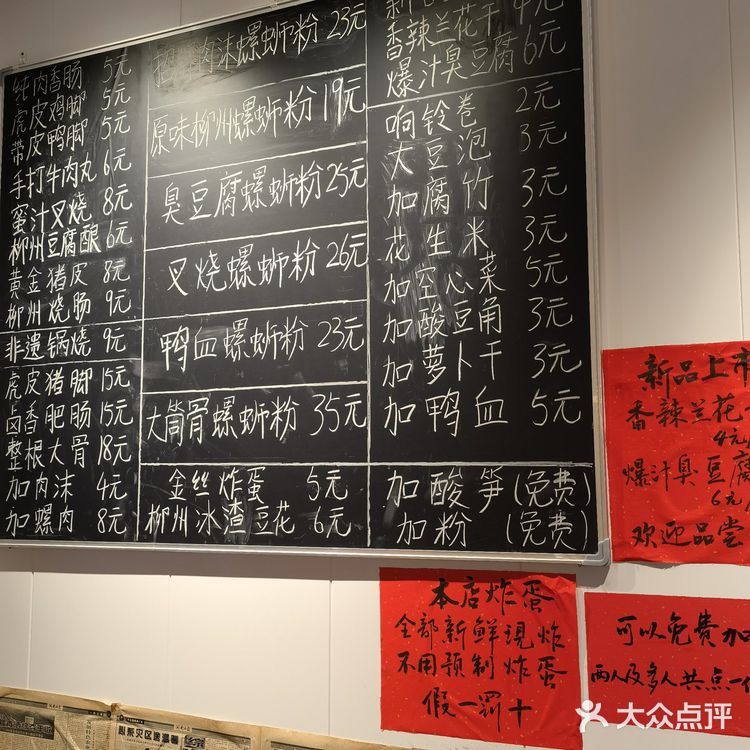 纯肉香肠 5元
虎皮鸡脚 5元
带皮鸭脚 5元
手打牛肉丸 6元
蜜汁叉烧 8元
柳州豆腐酿 6元
黄金猪皮 8元
柳州烧肠 9元
非遗锅烧 9元
虎皮猪脚 15元
卤香肥肠 15元
整根大骨 18元
加肉沫 4元
加螺肉 8元
肉沫螺蛳粉 23元
原味柳州螺蛳粉 19元
臭豆腐螺蛳粉 25元
叉烧螺蛳粉 26元
鸭血螺蛳粉 23元
大筒骨螺蛳粉 35元
金丝炸蛋 5元
柳州冰渣豆花 6元
香辣兰花干 4元
爆汁臭豆腐 6元
响铃卷 2元
大豆泡 3元
加腐竹 3元
花生米 3元
加空心菜 5元
加酸豆角 3元
加萝卜干 3元
加鸭血 5元
加酸笋(免费)
加粉(免费)
新品上市
香辣兰花
4元
爆汁臭豆腐
6元
欢迎品尝
本店炸蛋
全部新鲜現炸
不用预制炸蛋
假一罰十
可以免费加
两人及多人共点一
大众点评